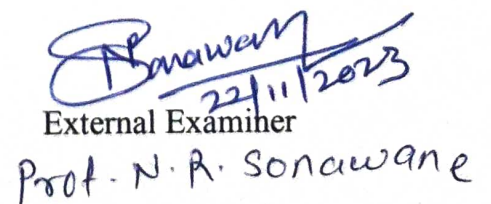 NSonawane
22/11/2023
External Examiner
Prof. N. R. Sonawane